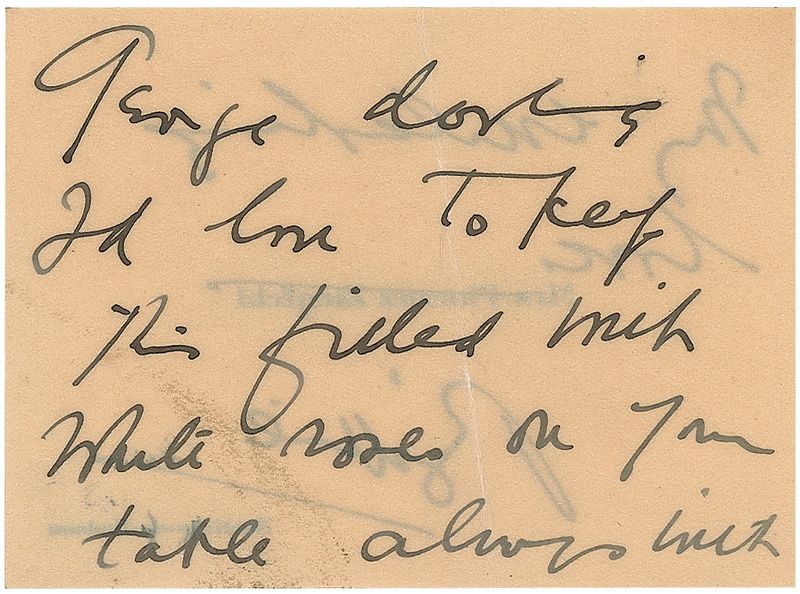 George darling
I'd love to keep
this filled with
white roses on your
table always with